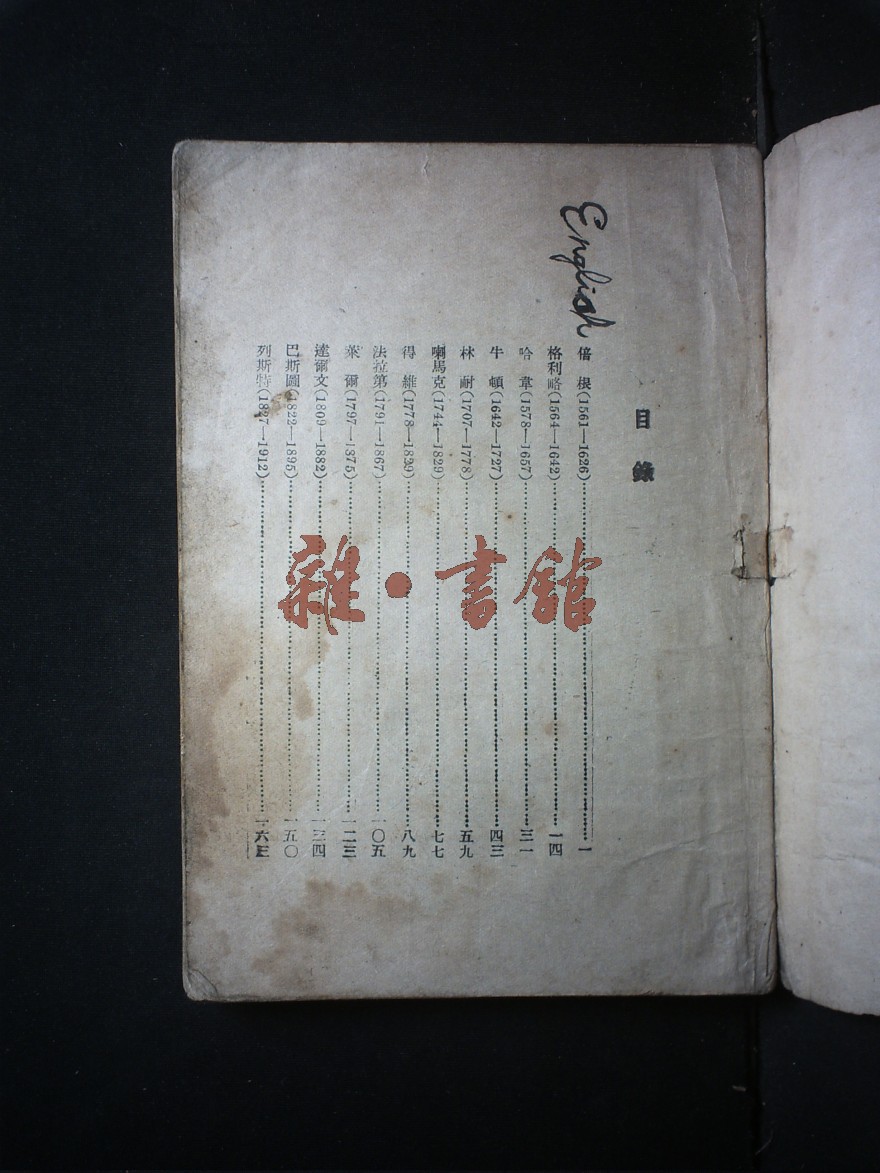 English
目錄
倍根(1561—1626)……一
格利略(1564—1642)……一四
哈韋(1578—1657)……三一
牛頓(1642—1727)……四三
林耐(1707—1778)……五九
喇馬克(1744—1829)……七七
得維(1778—1829)……八九
法拉第(1791—1867)……一〇五
萊爾(1797—1875)……一二三
達爾文(1809—1882)……一三四
巴斯圖(1822—1895)……一五〇
列斯特(1827—1912)……一六三
雜·書館